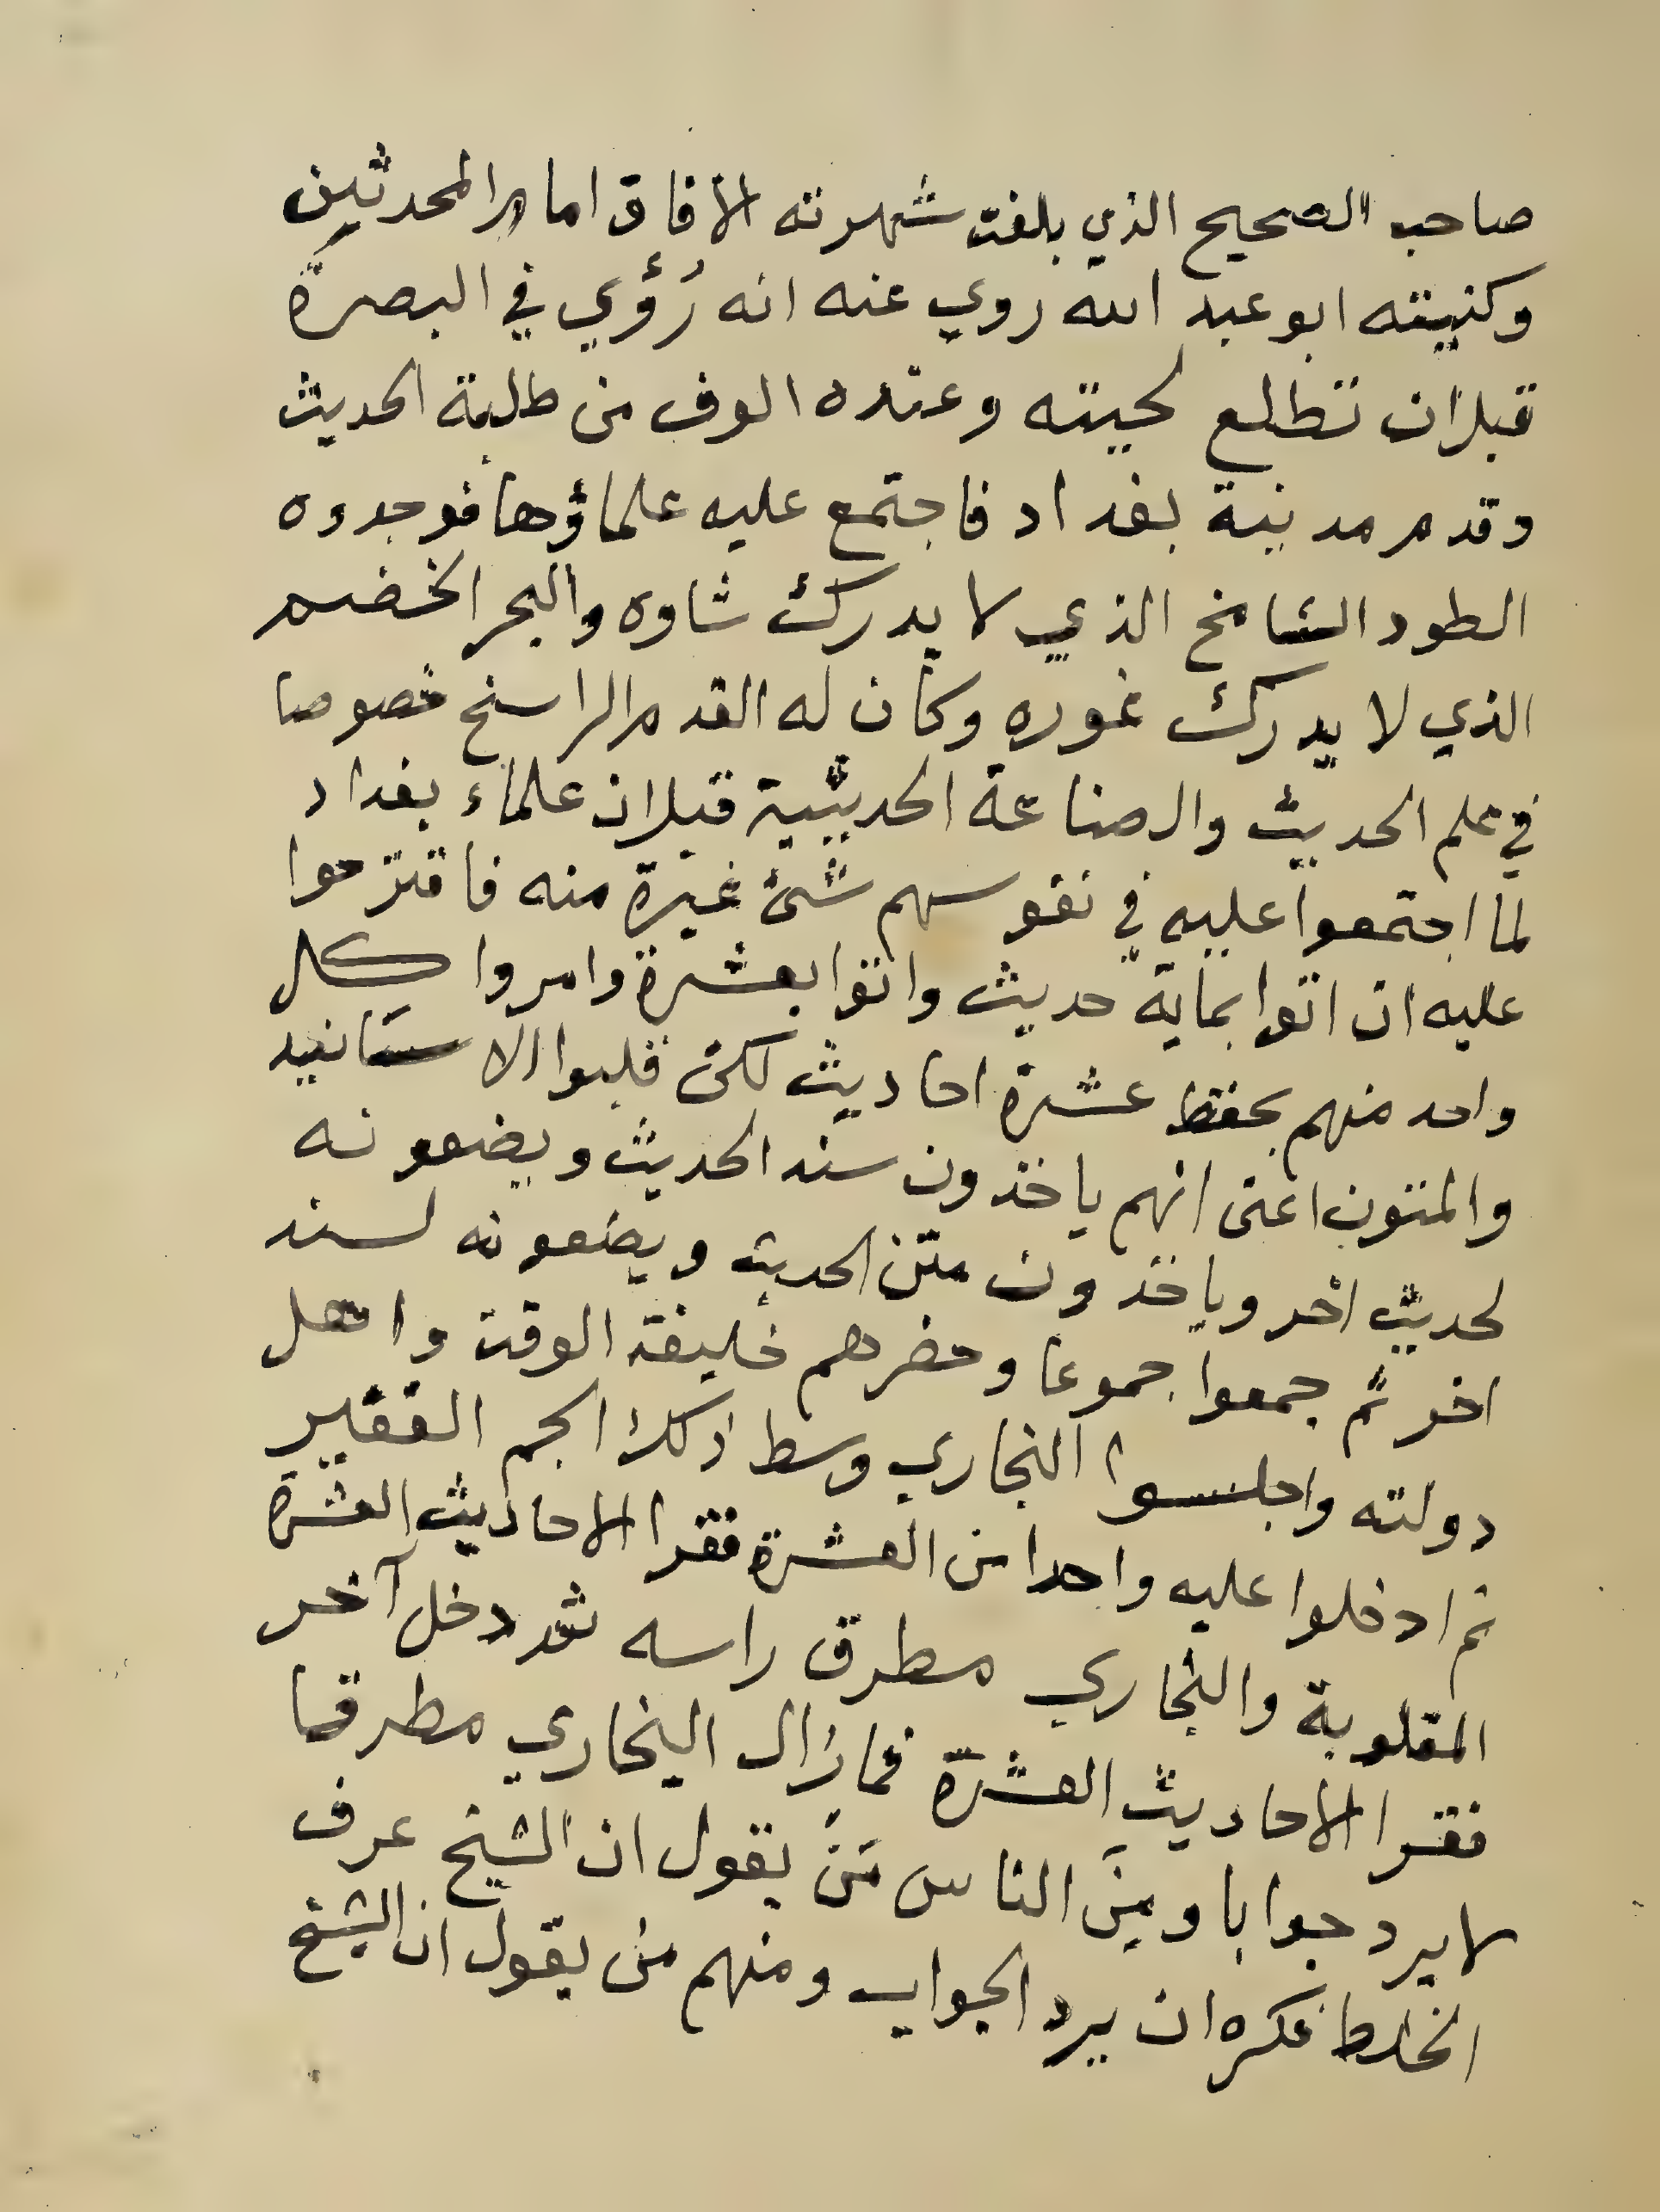 صاحب الصحيح الذي بلغت شهرته الافاق امام المحدثين
وكنيته ابو عبد الله روي عنه انه رُؤي في البصرة
قبل ان تطلع لحيته وعنده الوف من طلبة الحديث
وقدم مدينة بغداد فاجتمع عليه علماؤها فوجدوه
الطود الشامخ الذي لا يدرك شاوه والبحر الخضم
الذي لا يدرك غوره وكان له القدم الراسخ خصوصا
في علم الحديث والصناعة الحديثية قبل ان علماء بغداد
لما اجتمعوا عليه في نفوسهم شئ غيرة منه فاقترحوا
عليه ان اتوا بماية حديث واتوا بعشرة وامروا كل
واحد منهم بحفظ عشرة احاديث لكن قلبوا الاسانيد
والمتون اعنى انهم ياخذون سند الحديث ويضعونه
لحديث اخر وياخذون متن الحديث ويضعونه لسند
اخر ثم جمعوا جموعا وحضرهم خليفة الوقت واهل
دولته واجلسوا البخاري وسط ذلك الجم الغفير
ثم ادخلوا عليه واحدا من العشرة فقرا الاحاديث العشرة
المقلوبة والبخاري مطرق راسه ثم دخل آخر
فقرا الاحاديث العشرة فما زال البخاري مطرقا
لا يرد جوابا ومِنَ الناس مَنْ يقول ان الشيخ عرف
الخلط فكره ان يرد الجواب ومنهم من يقول ان الشيخ